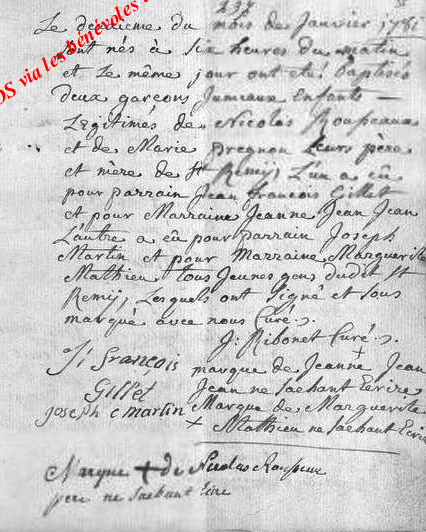 237
Le deuxieme du mois de Janvier 1781
sont nés à six heures du matin
et le même jour ont eté baptisés
deux garçons Jumeaux enfants
Legitimés de Nicolas Rousseaux
et de Marie Dregnon Leurs père
et mère de St Remij, L'un a eu
pour parrain Jean francois Gillet
et pour Marraine Jeanne Jean Jean
L'autre a eû pour parrain Joseph
Martin et pour Marraine Marguerite
Mathieu tous Jeunes gens dudit St
Remij, Lesquels ont signé et sous
marqué avec nous Curé.
J. Ribonet Curé.
Ji françois Gillet
joseph martin
marque de Jeanne Jean
Jean ne sachant Ecrire
Marque de Marguerite
+ Mathieu ne sachant Ecrire
Marque + de Nicolas Rousseaux
pere ne sachant Ecire
OS via les bénévoles